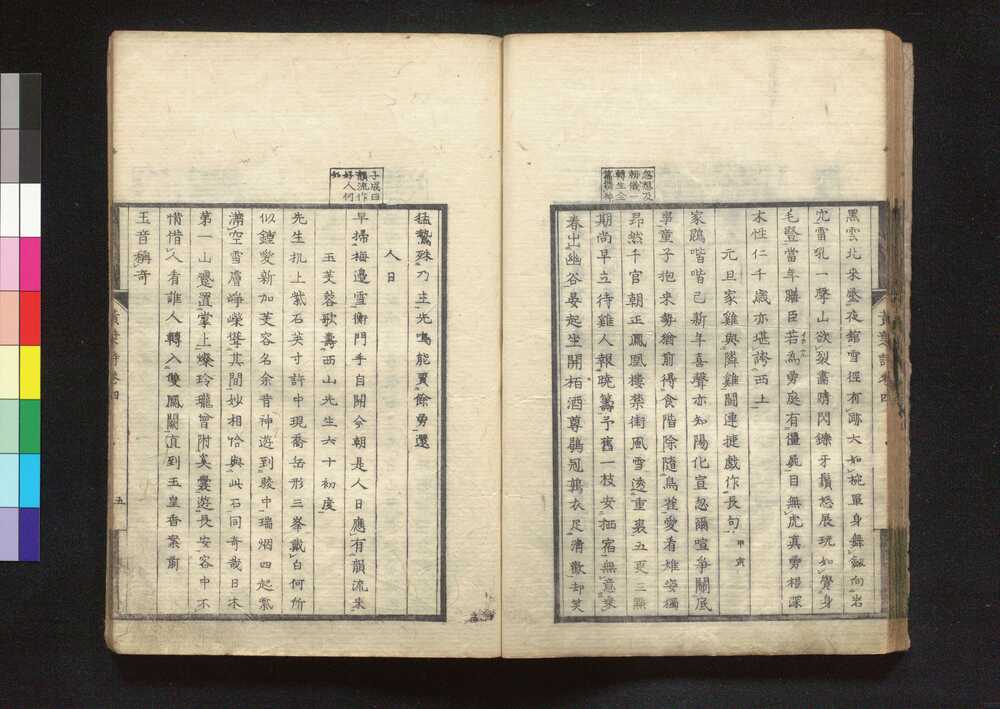 黑雲北來壓夜舘雪徑有跡大如椀單身舞向岩
穴雷乳一聲山欲裂晝晴閃鑠牙鬚怒展玩如覺身
毛豎當年膳臣若為勇庭有僵屍目無虎真勇根深
木性仁千歲亦堪誇西土
元旦家雞與隣雞鬪連捷戲作長句 甲寅
家鷄喈喈已新年喜聲亦知陽化宣忽爾喧爭鬪底
事童子抱來勢猶前得食階除隨鳥雀愛看雄姿獨
昂然千官朝正鳳凰樓禁街風雪透重裘五更三點
期尚早立待雞人報曉籌予舊一枝安栖宿無意乘
春出幽谷晏起坐開栢酒尊鶡冠鶉衣足清歡却笑
黃葉詩卷四
猛鷙殊乃生先鳴能賈餘勇還
人日
子成曰
韻流作
好人何
如
早掃梅邊雪衡門手自開今朝是人日應有韻流來
玉芙蓉歌壽西山先生六十初度
先生机上紫石英寸許中現喬岳形三峯戴白何所
似鍾愛新加芙容名余昔神遊到駿中瑞烟四起氣
滿空雪膚崢嶸聳其間妙相恰與此石同奇哉日本
第一山遷置掌上燦玲瓏曾附奚囊遊長安容中不
惜借人看誰人轉入雙鳳闕直到玉皇香案前
玉音稱奇
五